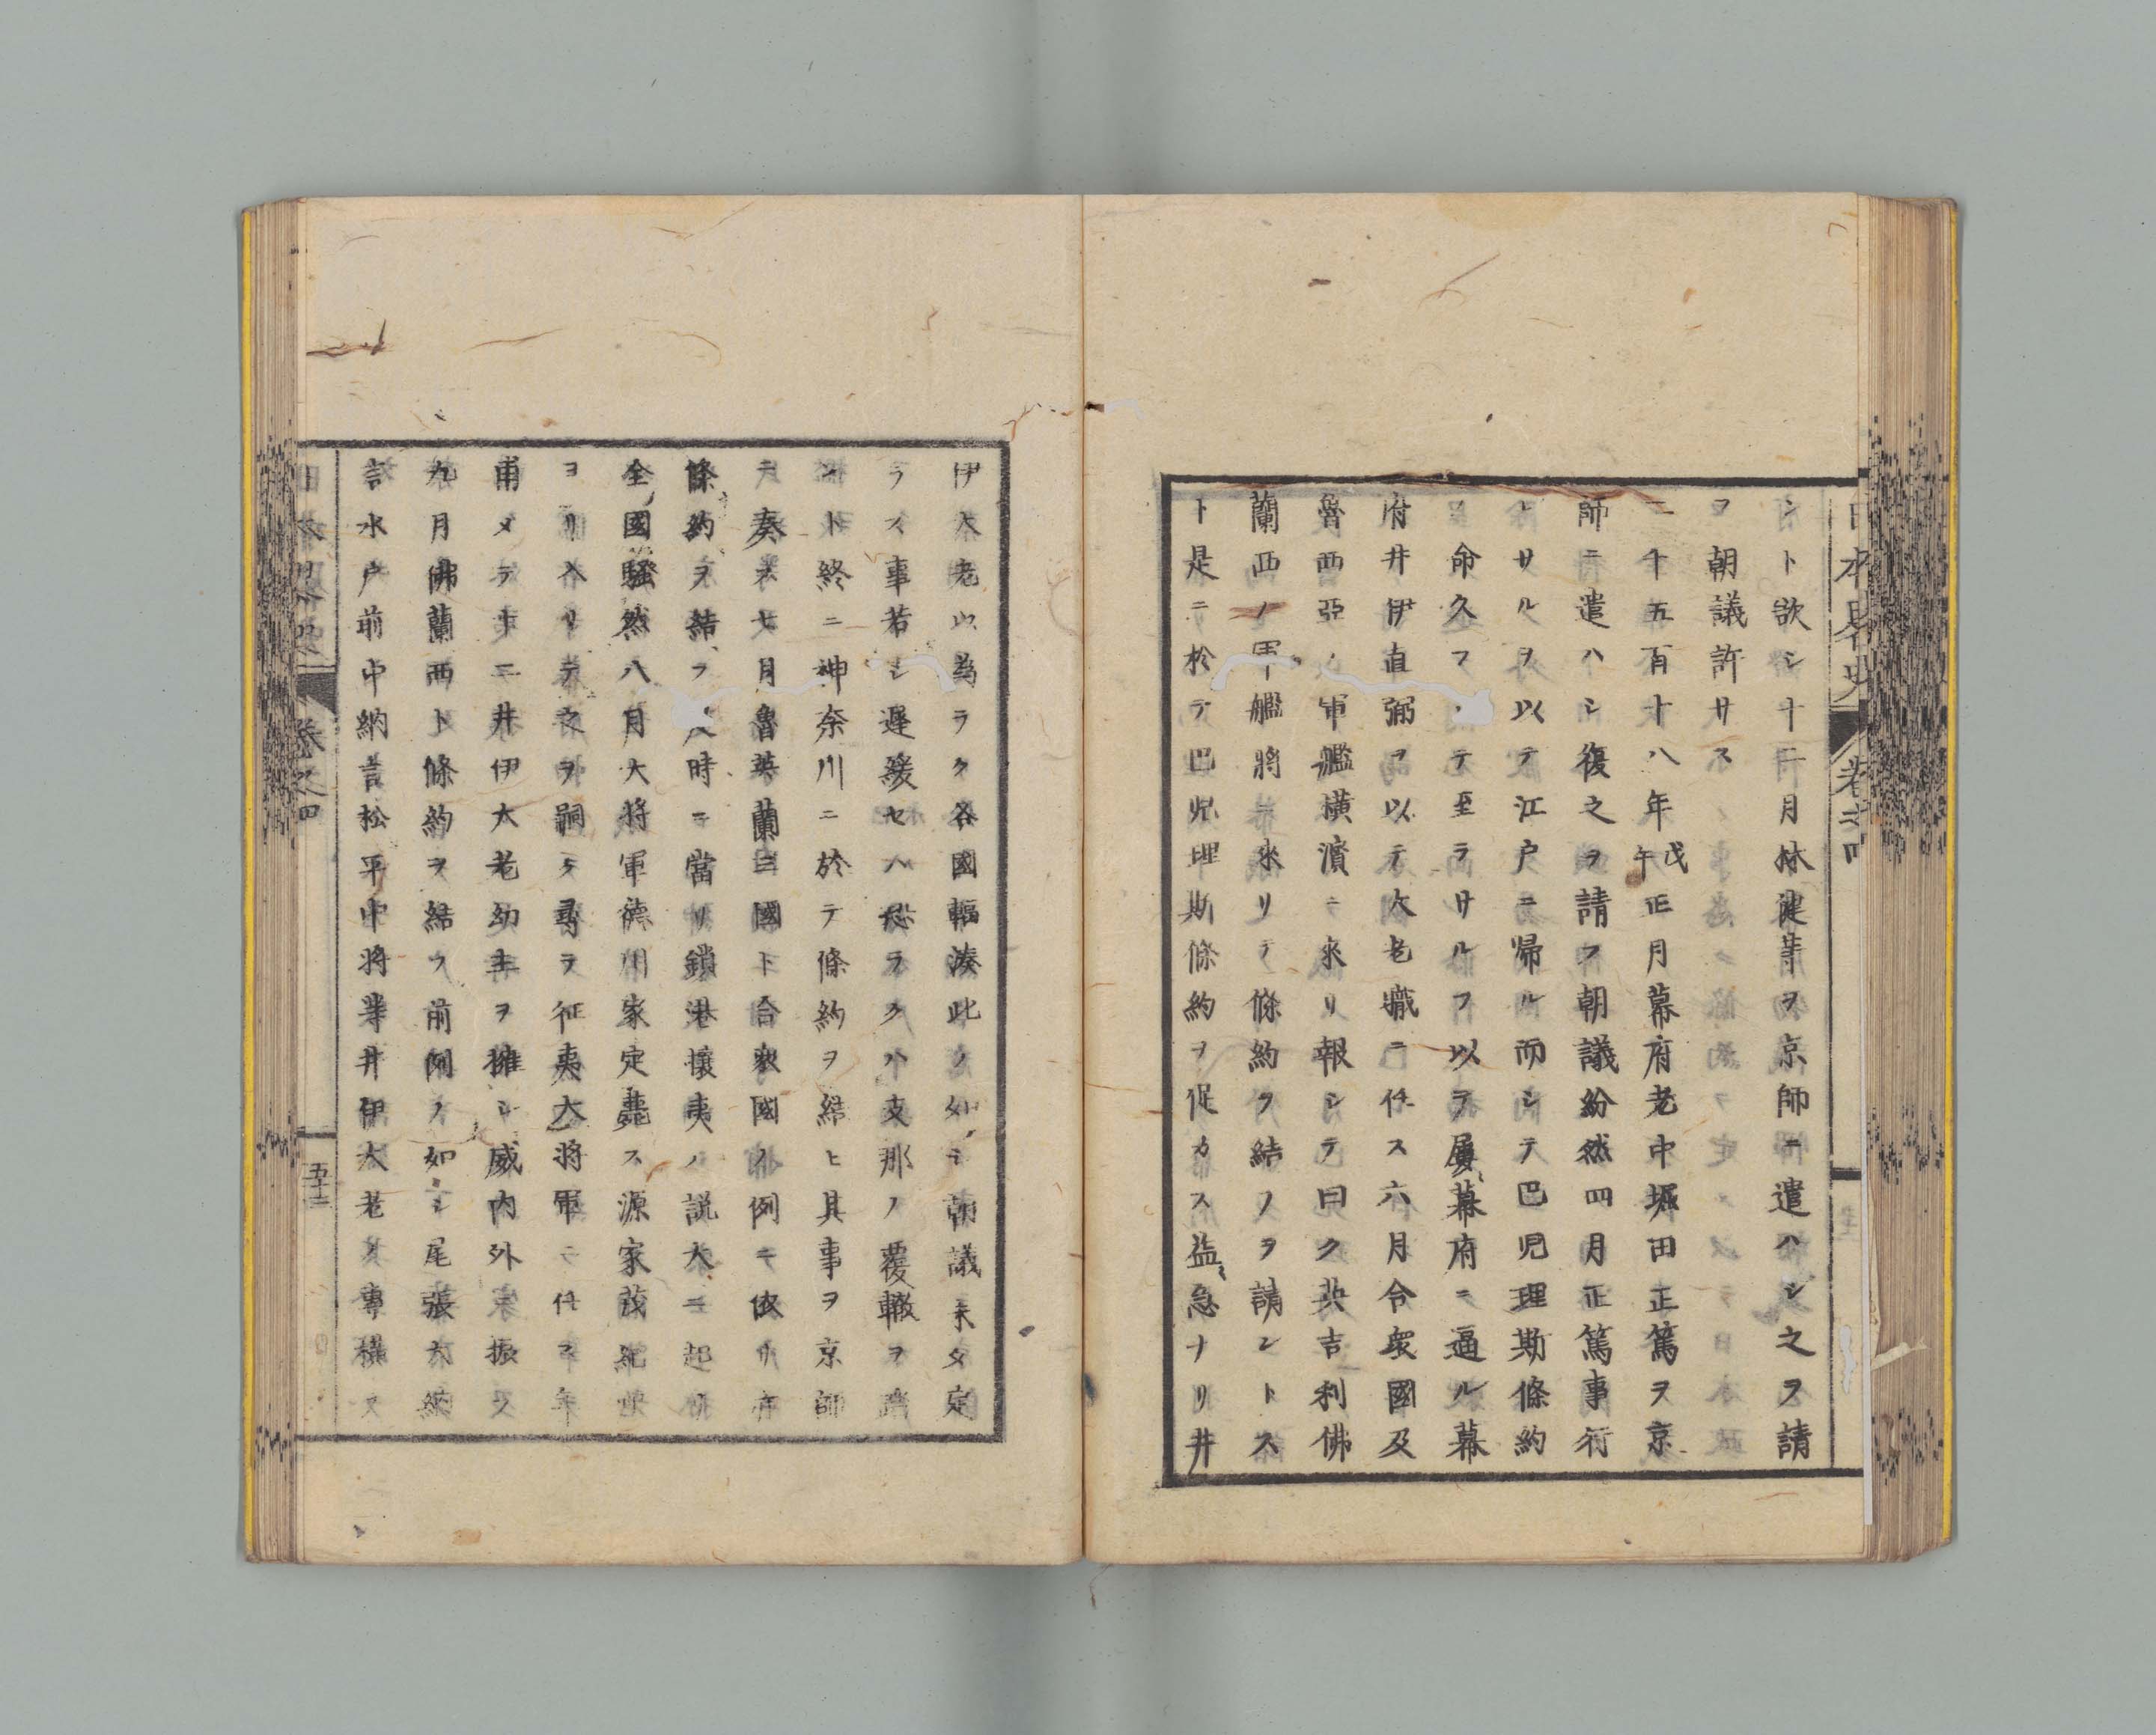 シト欲シ十二月林健等ヲ京師ニ遣ハシ之ヲ請
フ朝議許サス
二千五百十八年戊午正月幕府老中堀田正篤ヲ京
師ニ遣ハシ復之ヲ請フ朝議紛然四月正篤事行
ハサルヲ以テ江戸ニ帰ル而シテ巴児理斯條約
ノ命久フシテ至ラサルヲ以テ屢幕府ニ逼ル幕
府井伊直弼ヲ以テ大老職ニ任ス六月合衆國及
魯西亞ノ軍艦横濱ニ来リ報シテ曰ク英吉利佛
蘭西ノ軍艦将ニ来リテ條約ヲ結ハンヲ請ントス
ト是ニ於テ巴児理斯條約ヲ促カス益急ナリ井
伊大老以為ラク各國輻湊此ノ如シ朝議未タ定
ラス事若シ遅緩セハ恐ラクハ支那ノ覆轍ヲ踏
ント終ニ神奈川ニ於テ條約ヲ結ヒ其事ヲ京師
ニ奏ス七月魯英蘭三國ト合衆國ノ例ニ依リ亦
條約ヲ結フ此時ニ當リ鎖港攘夷ノ説大ニ起リ
全國騒然八月大将軍徳川家定薨ス源家茂紀伊
ヨリ入リテ之ヲ嗣ク尋テ征夷大将軍ニ任ス年
甫メテ十三井伊大老幼主ヲ擁シ威内外ニ振フ
九月佛蘭西ト條約ヲ結フ前例ノ如シ尾張大納
言水戸前中納言松平中将等井伊大老ノ專横ヲ
日本畧史 巻之四
五十二